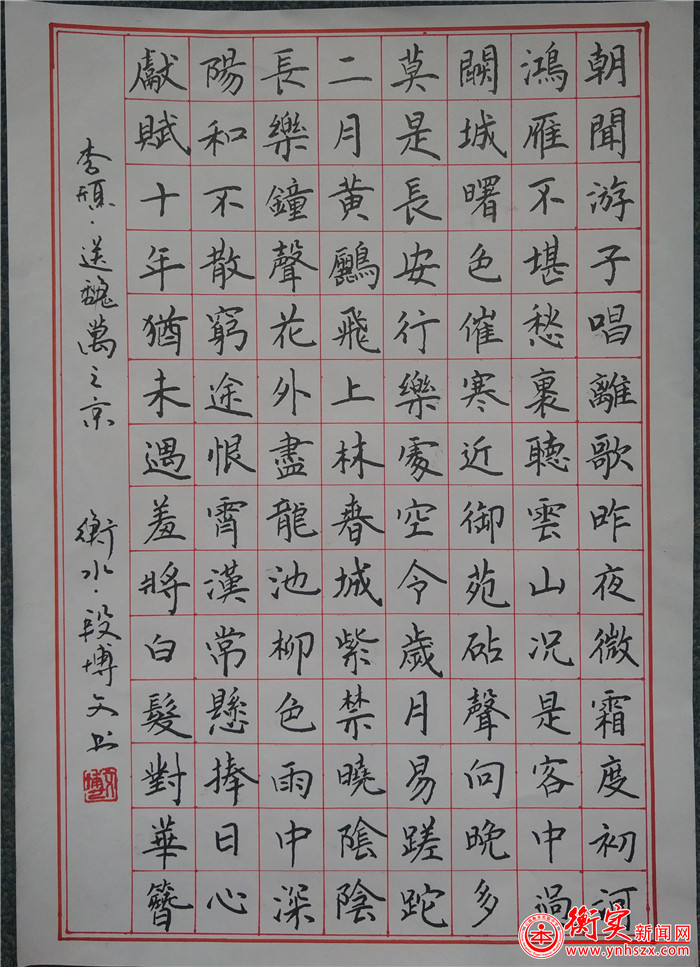 朝聞游子唱離歌昨夜微霜度初河
鴻雁不堪愁裏聽雲山况是客中過
闕城曙色催寒近御苑砧聲向晚多
莫是長安行樂處空令歲月易蹉跎
二月黃鸝飛上林春城紫禁曉陰陰
長樂鐘聲花外盡龍池柳色雨中深
陽和不散窮途恨霄漢常懸捧日心
獻賦十年猶未遇羞將白髮對華簪
李頎·送魏萬之京 衡水·段博文书
衡实新闻网
www.ynhszx.com